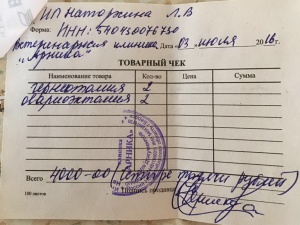 ИП Наторхина Л.В
Форма: ИНН: 540430076730
Ветеринарная клиника
"Арника" Дата „ 03 " июля 2016г.
ТОВАРНЫЙ ЧЕК
Наименование товара Кол-во Цена Сумма
герниотомия 2
овариоэктомия 2
"АРНИКА"
Всего 4000-00 (четыре тысячи рублей)
100 листов Подпись продавца